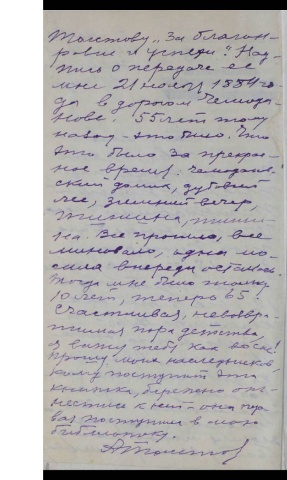 Толстому „За благон-
равие и успехи". Над-
пись о передаче ее
мне 21 ноябр. 1884 го-
да в дорогом Чемода-
нове. 55 лет тому
назад - это было. Что
это было за прекрас-
ное время! Чемоданов-
ский домик, дубовый
лес, зимний вечер,
тишина, тиши-
на. Все прошло, все
миновало, одна мо-
гила впереди осталась.
Тогда мне было только
10 лет, теперь 65!
Счастливая, невозвра-
тимая пора детства,
я вижу тебя как во сне!
Прошу моих наследников
кому поступит эта
книжка, бережно от-
нестись к ней - она пер-
вая поступила в мою
библиотеку.
АТолстой